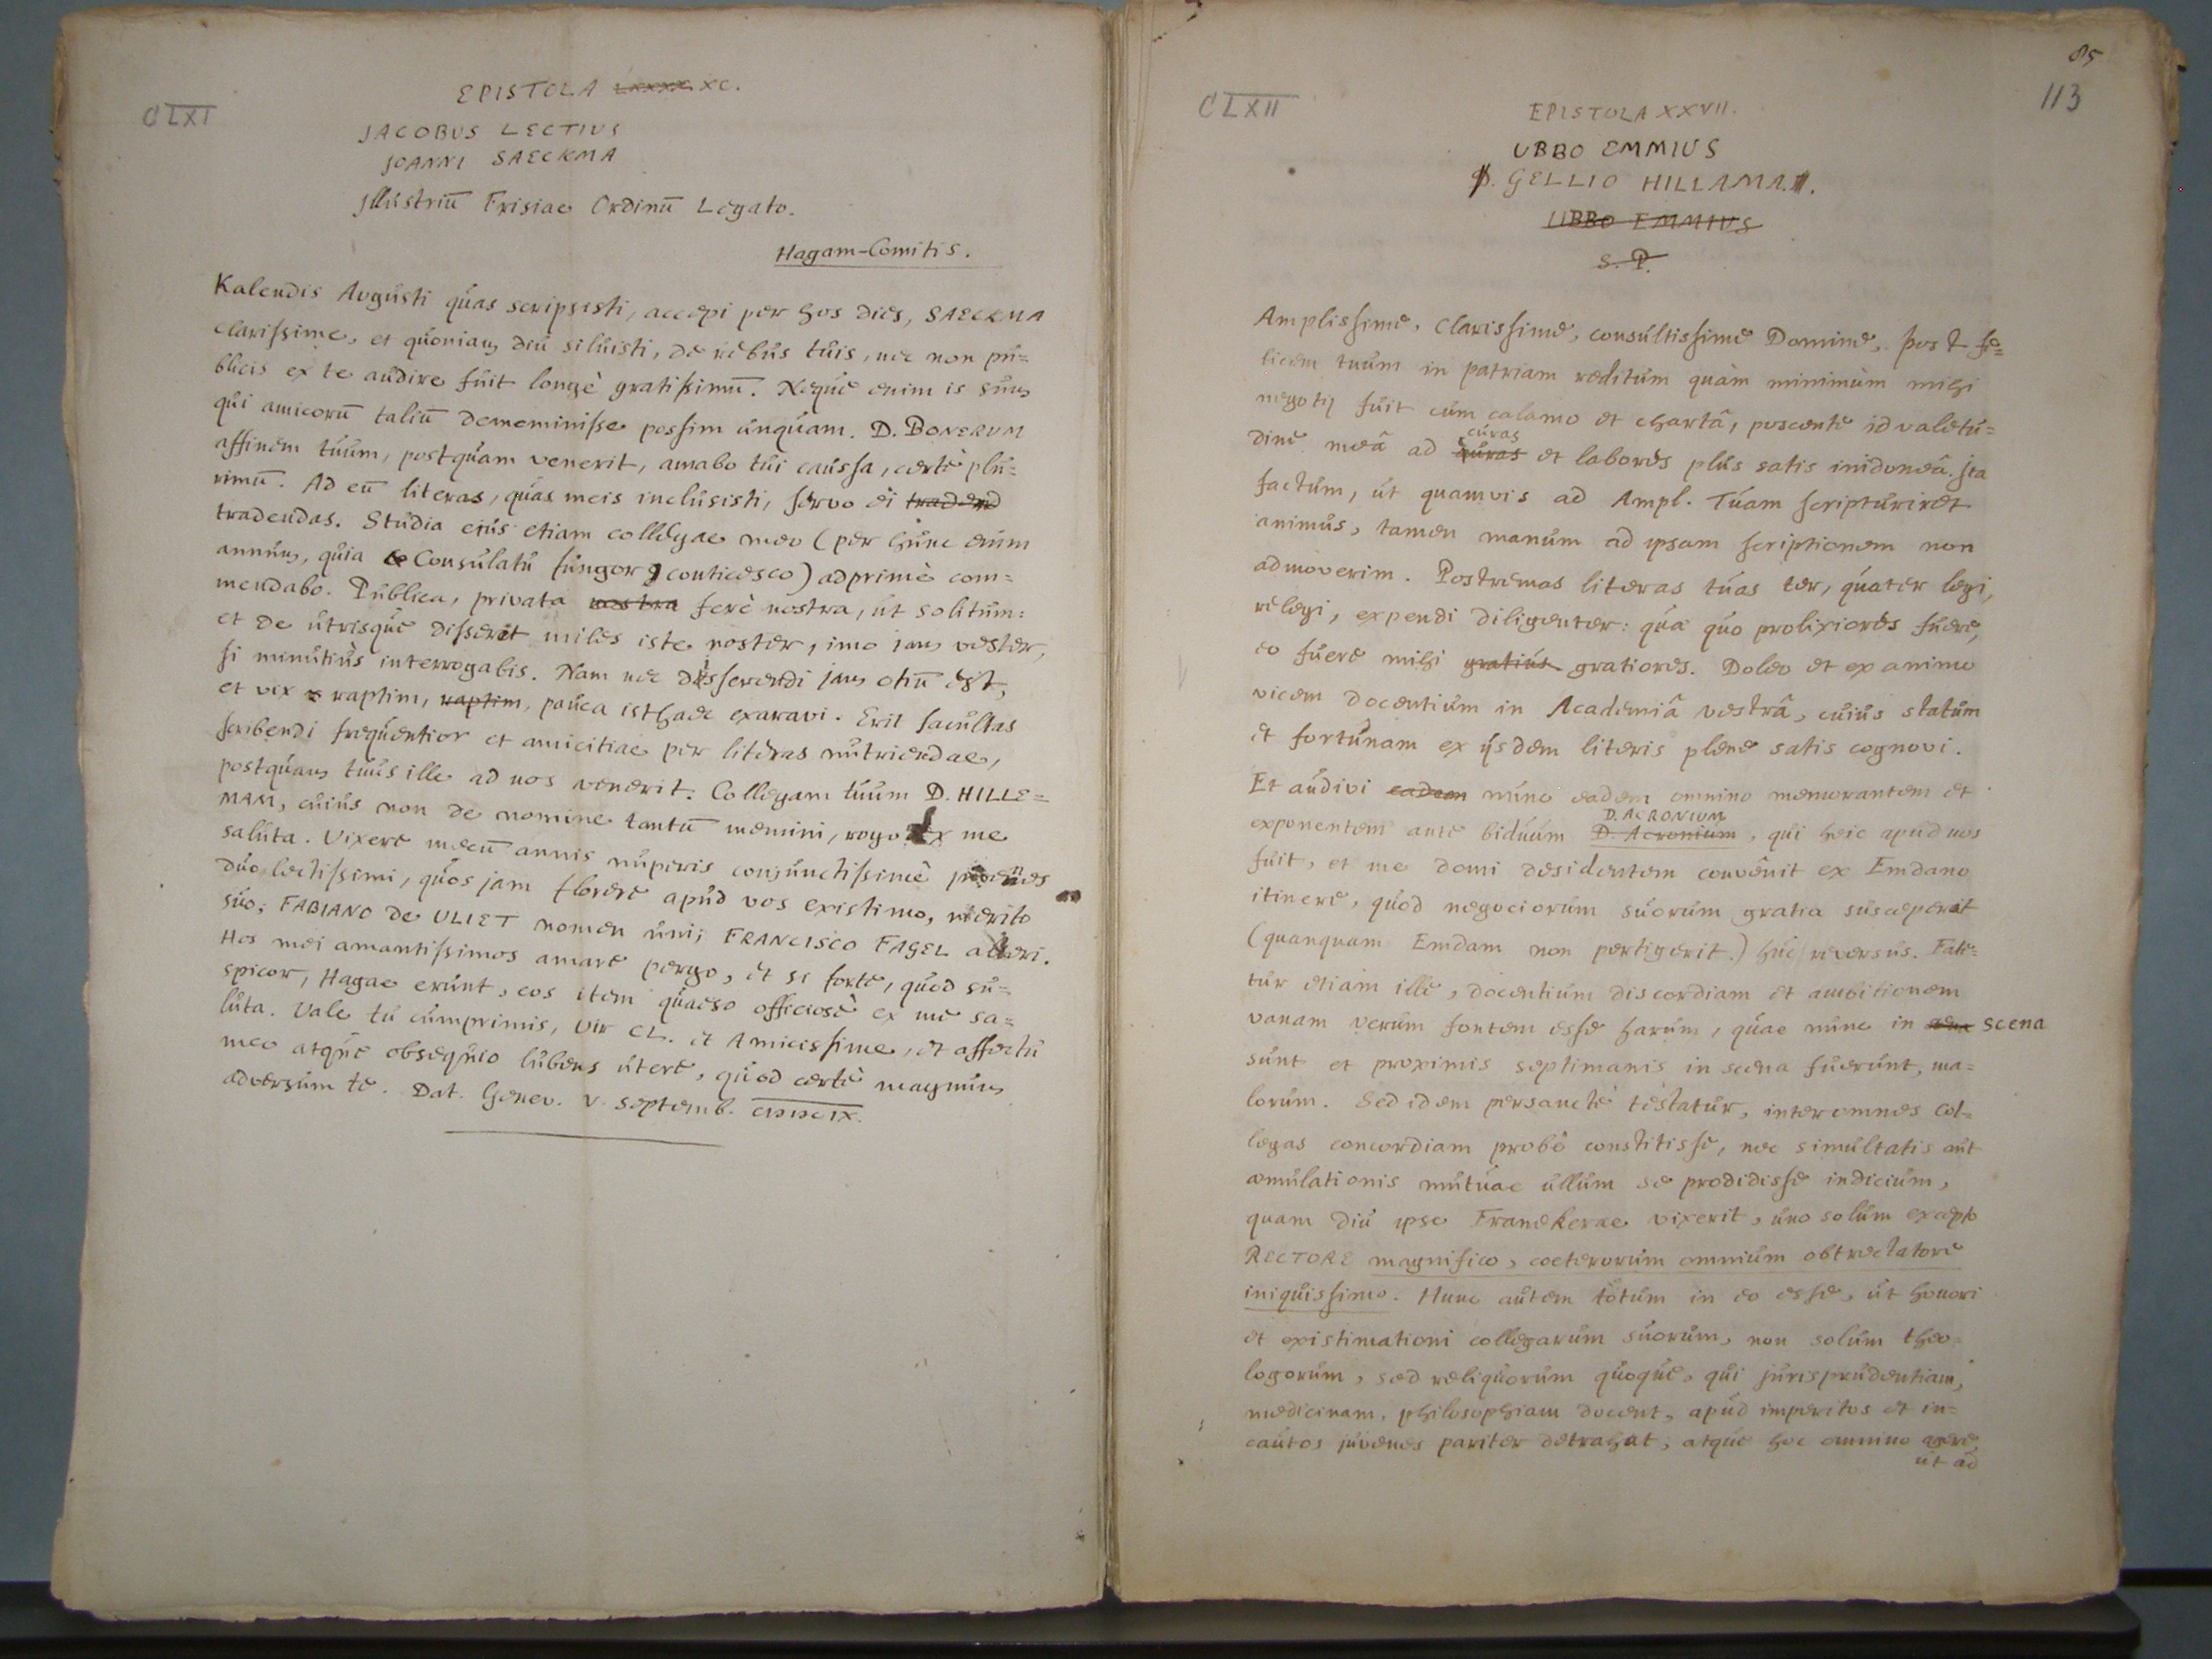 CLXI
EPISTOLA XC.
JACOBUS LECTIUS
JOANNI SAECKMA
Jllustriū Frisiae Ordinū Legato.
Hagam-Comitis.
Kalendis Augusti quas scripsisti, accepi per hos dies, SAECKMA
clarissime, et quoniam diu siluisti, de rebus tuis, nec non pu=
blicis ex te audire fuit longè gratissimū. Neque enim is sum
qui amicorū taliū dememinisse possim unquam. D. BONERUM
affinem tuum, postquam venerit, amabo tui caussa, certè plu=
rimū. Ad eū literas, quas meis inclusisti, servo ei tradend
tradendas. Studia eius etiam collegae meo (per hunc enim
annum, quia Consulatu fungor, conticesco) adprimè com=
mendabo. Publica, privata nostra ferè nostra, ut solitum:
et de utrisque disseret miles iste noster, imo jam vester,
si minutiùs interrogabis. Nam nec disserendi jam otiū est,
et vix raptim, raptim, pauca isthaec exaravi. Erit facultas
scribendi frequentior et amicitiae per literas nutriendae,
postquam tuus ille ad nos venerit. Collegam tuum D. HILLE=
MAM, cuius non de nomine tantū memini, rogo ex me
saluta. Vixere mecū annis nuperis conjunctissimè juvenes
duo lectissimi, quos jam florere apud vos existimo, merito
suo; FABIANO de VLIET nomen uni; FRANCISCO FAGEL alteri.
Hos mei amantissimos amare pergo, et si forte, quod su=
spicor, Hagae erunt, eos item quaeso officiosè ex me sa=
luta. Vale tu cumprimis, vir CL. et Amicissime, et affectu
meo atque obsequio lubens utere, quod certè magnum
adversum te. Dat. Genev. V. Septemb. CIƆIƆCIX.
85
113
CLXII
EPISTOLA XXVII.
UBBO EMMIUS
D. GELLIO HILLAMA.
UBBO EMMIUS
S. P.
Amplissime, clarissime, consultissime Domine, post fe=
licem tuum in patriam reditum quàm minimùm mihi
negotij fuit cùm calamo et chartâ, poscente id valetu=
dine meâ ad curas et labores plus satis inidoneâ. Jta
factum, ut quamvis ad Ampl. Tuam scripturiret
animus, tamen manum ad ipsam scriptionem non
admoverim. Postremas literas tuas ter, quater legi,
relegi, expendi diligenter: qua quo prolixiores fuere,
eo fuere mihi gratius gratiores. Doleo et ex animo
vicem docentium in Academiâ vestrâ, cuius statum
et fortunam ex ijsdem literis plene satis cognovi.
Et audivi eadem nunc eadem omnino memorantem et
exponentem ante biduum D. ACRONIUM D. Acronium, qui heic apud nos
fuit, et me domi desidentem convênit ex Emdano
itinere, quod negociorum suorum gratia susceperat
(quanquam Emdam non pertigerit.) huc reversus. Fate=
tur etiam ille, docentium discordiam et ambitionem
vanam verum fontem esse harum, quae nunc in scena
sunt et proximis septimanis in scena fuerunt, ma=
lorum. Sed idem persanctè testatur, inter omnes col=
legas concordiam probè constitisse, nec simultatis aut
aemulationis mutuae ullum se prodidisse indicium,
quam diu ipse Franekerae vixerit, uno solùm excepto
RECTORE magnifico, coeterorum omnium obtrectatore
iniquissimo. Hunc autem totum in eo esse, ut honori
et existimationi collegarum suorum, non solùm theo=
logorum, sed reliquorum quoque, qui jurisprudentiam,
medicinam, philosophiam docent, apud imperitos et in=
cautos juvenes pariter detrahat, atque hoc omnino agere,
ut ad